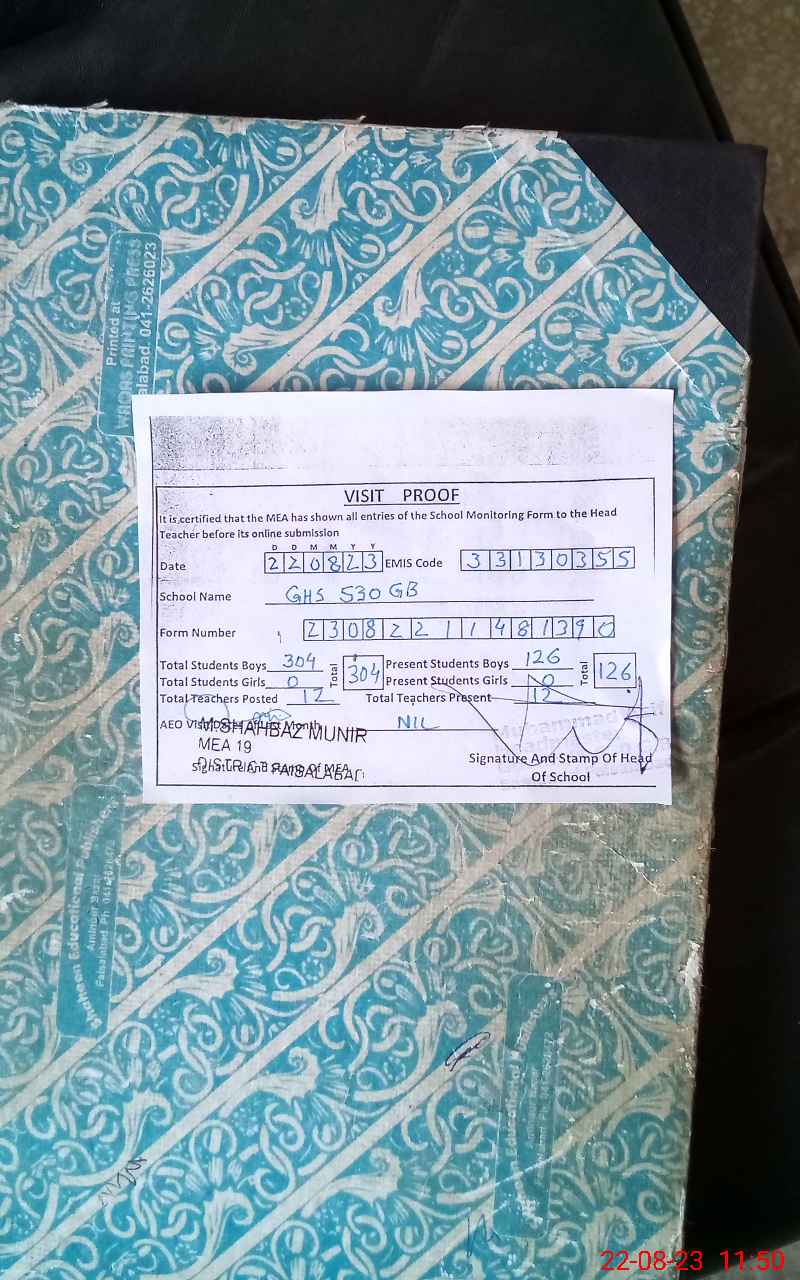 Printed at
WRORS PRINTING PRESS
alabad 041-2626023
VISIT PROOF
It is certified that the MEA has shown all entries of the School Monitoring Form to the Head
Teacher before its online submission
D D M M Y Y
Date 220823 EMIS Code 33130355
School Name GHS 530 GB
Form Number 23082211481390
Total Students Boys 304 Total 304 Present Students Boys 126 Total 126
Total Students Girls 0 Present Students Girls 0
Total Teachers Posted 12 Total Teachers Present 12
AEO Visit Last Month NIL
M.SHAHBAZ MUNIR
MEA 19
DISTRICT FAISALABAD
Signature And Stamp Of MEA
Muhammad
Signature And Stamp Of Head
Of School
Shaheen Educational
Aminpur Bazar
Faisalabad. Ph
22-08-23 11:50